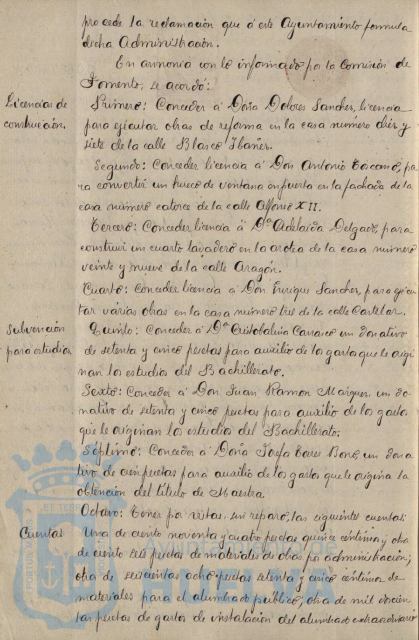 procede la reclamación que á este Ayuntamiento formula
dicha Administración.
En armonia con lo informado por la Comisión de
Fomento, se acordó:
Licencias de
construcción.
Primero: Conceder á Doña Dolores Sanchez, licencia
para ejecutar obras de reforma en la casa número diez y
siete de la calle Blasco Ibañez.
Segundo: Conceder licencia á Don Antonio pa-
ra convertir un hueco de ventana en puerta en la fachada de la
casa número catorce de la calle Alfonso XII.
Tercero: Conceder licencia á Dª Adelaida Delgado, para
construir un cuarto lavadero en la azotea de la casa número
veinte y nueve de la calle Aragón.
Cuarto: Conceder licencia á Don Enrique Sanchez, para ejecu-
tar varias obras en la casa número tres de la calle Castelar.
Subvención
para estudios
Quinto: Conceder á Dª Cristobalina Carrasco un donativo
de setenta y cinco pesetas para auxilio de los gastos que le origi-
nan los estudios del Bachillerato.
Sexto: Conceder á Don Juan Ramon Marquez, un do-
nativo de setenta y cinco pesetas para auxilio de los gastos
que le originan los estudios del Bachillerato.
Séptimo: Conceder á Doña Josefa Bono, un dona-
tivo de cien pesetas para auxilio de los gastos que le origina la
obtención del título de Maestra.
Cuentas
Octavo: Tener por vistas, sin reparo, las siguientes cuentas:
Una de ciento noventa y cuatro pesetas quince céntimos y otra
de ciento seis pesetas de materiales de obra por administración;
otra de seiscientas ocho pesetas setenta y cinco céntimos de
materiales para el alumbrado público; otra de mil doscien-
tas pesetas de gastos de instalación del alumbrado extraordinario